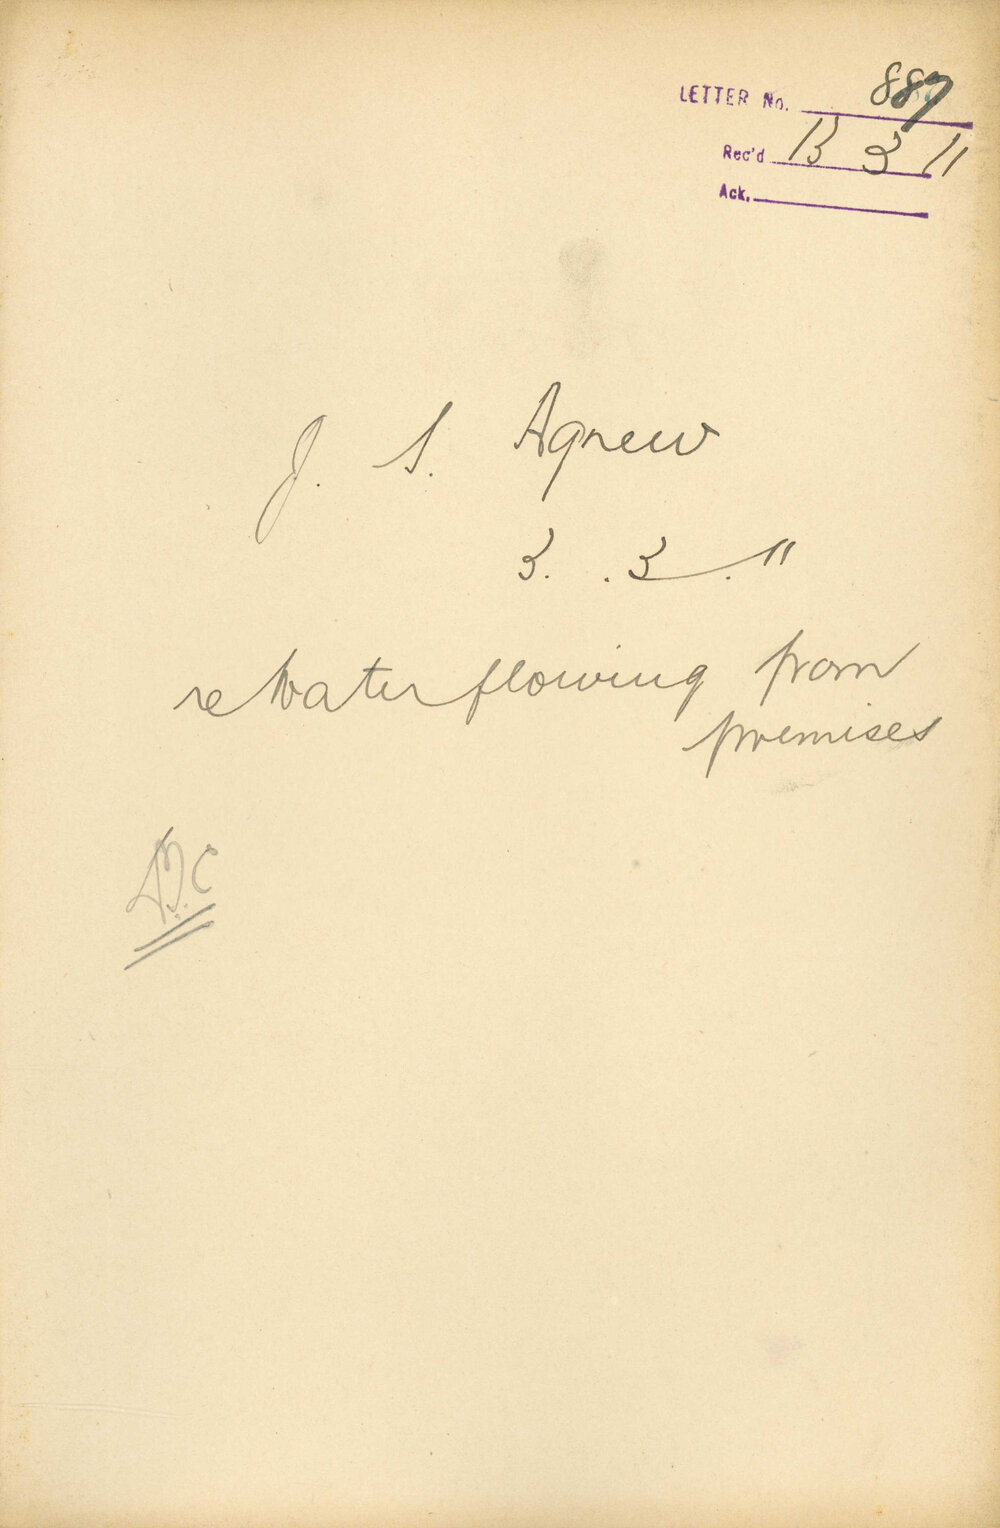 LETTER No. 887
Rec'd 13 3 11
Ack.
J. S. Agnew
3. .3 .11
re Water flowing from
premises